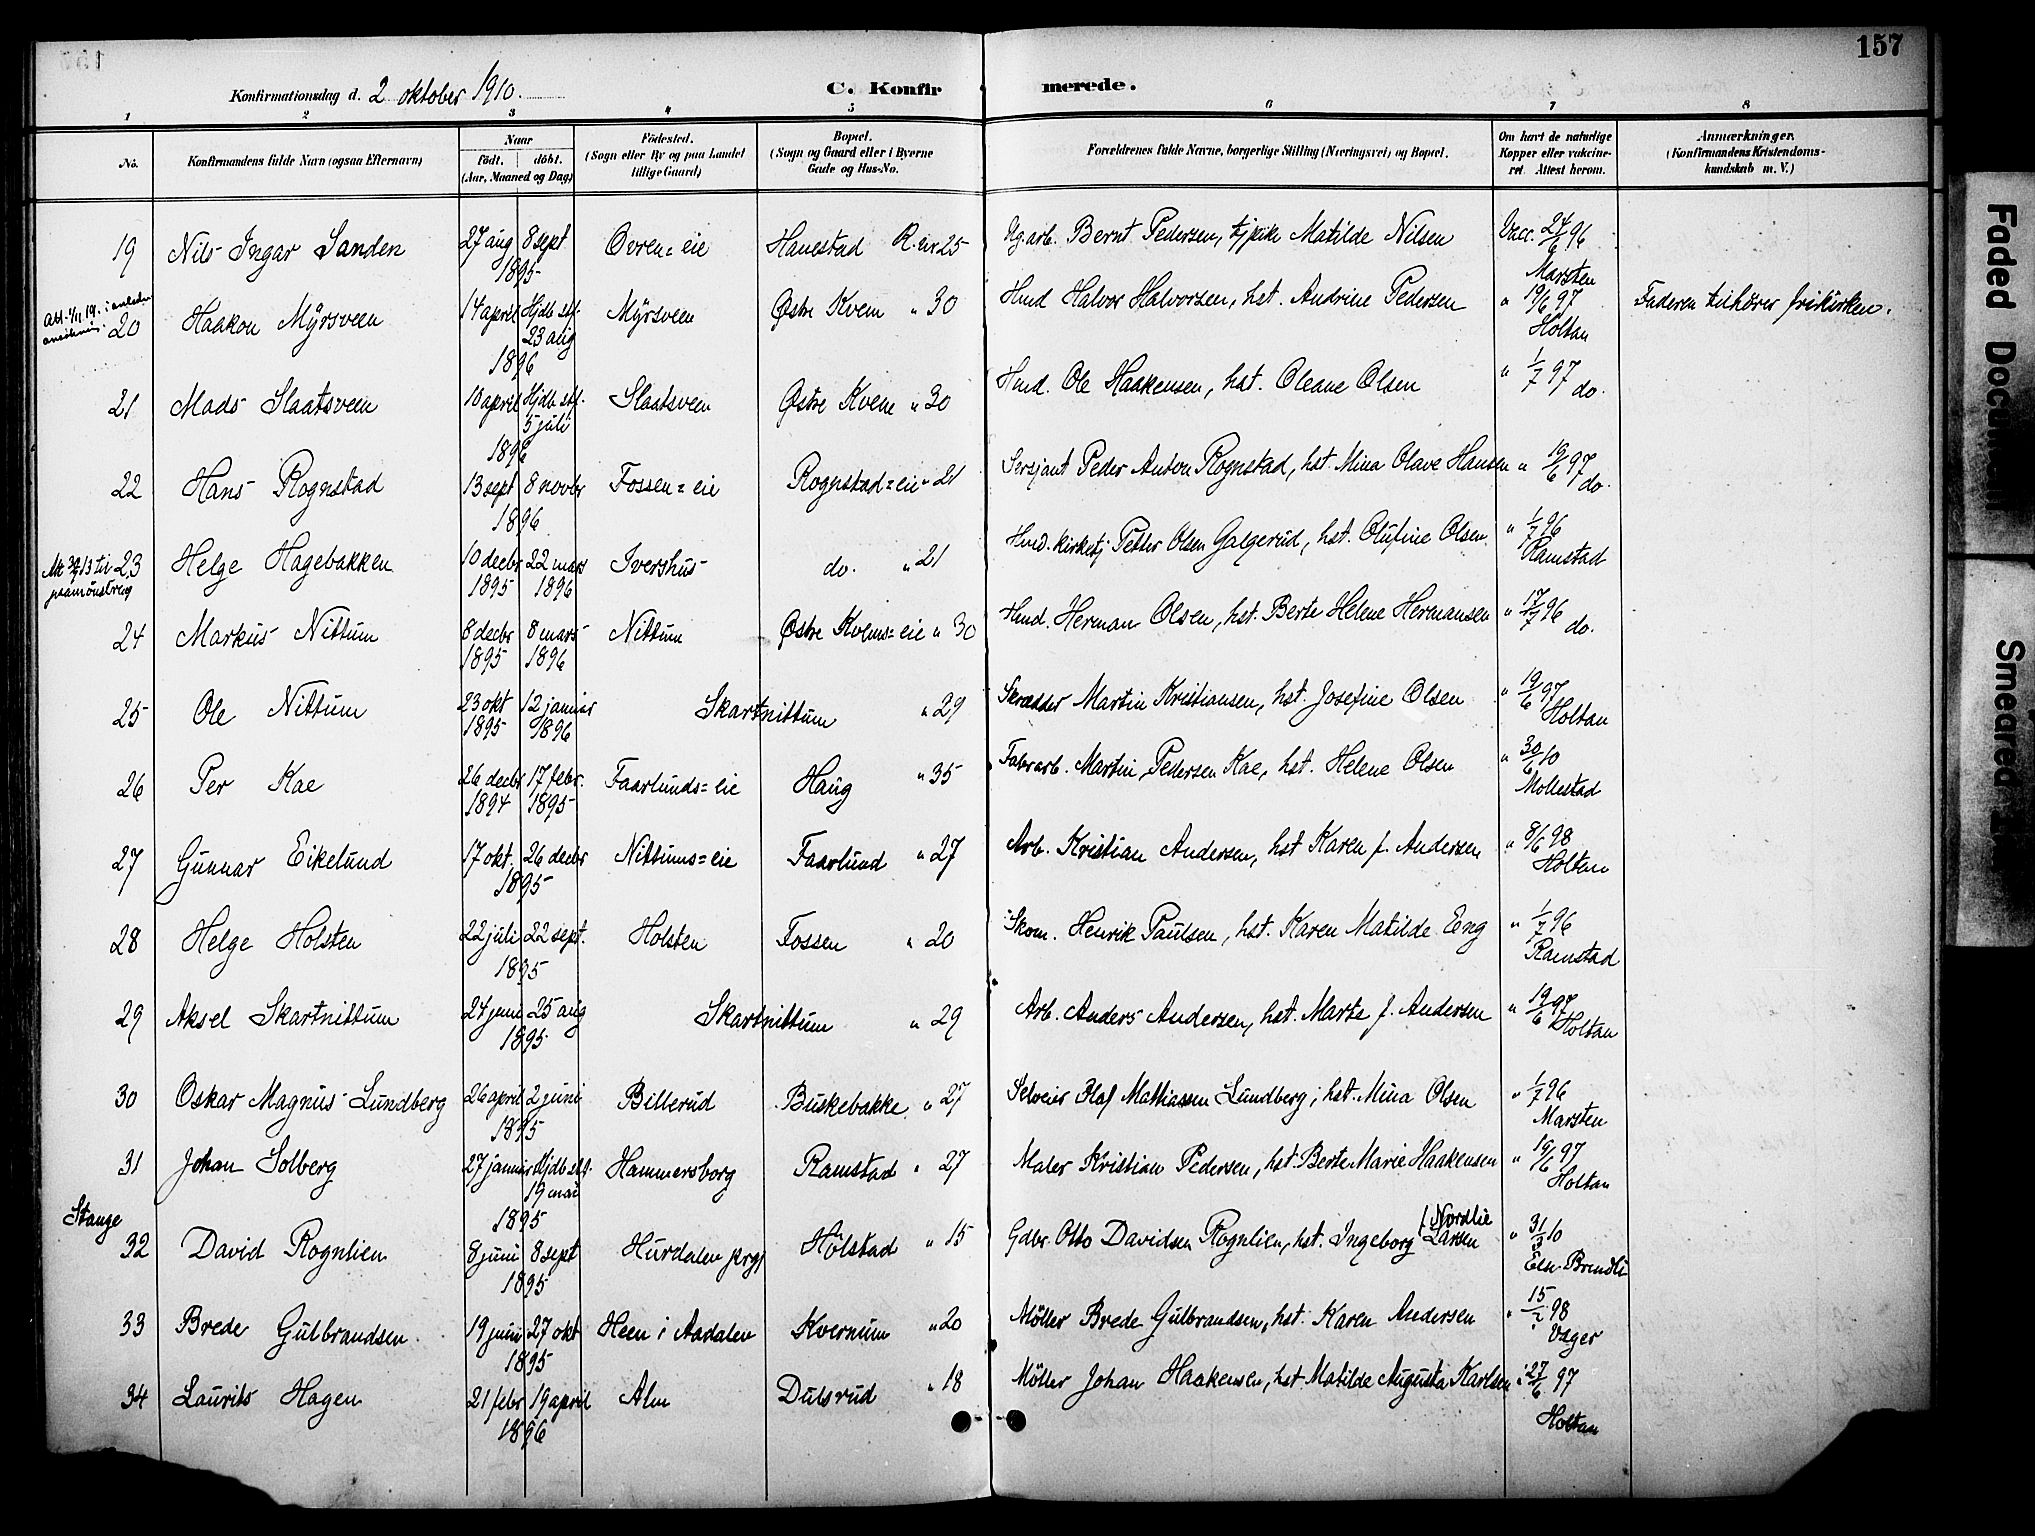 157
Konfirmationsdag d. 2 oktober 1910.
C. Konfirmerede.
1 2 3 4 5 6 7 8
No. Konfirmandens fulde Navn (ogsaa Efternavn) Naar födt. döbt. (Aar, Maaned og Dag) Födested. (Sogn eller By og paa Landet tillige Gaard) Bopæl. (Sogn og Gaard eller i Byerne Gade og Hus-No. Forældrenes fulde Navne, borgerlige Stilling (Næringsvei) og Bopæl. Om havt de naturlige Kopper eller vakcineret. Attest herom. Anmærkninger. (Konfirmandens Kristendomskundskab m. V.)
19 Nils Ingar Sanden 27 aug 8 sept 1895 Øvren=eie Hanestad R. eie 25 Ug. arb. Bernt Pedersen, tj pike Matilde Nilsen Vacc. 24/6 96 Marsten
20 Haakon Myrsveen 14 april Hjdb. stf. 23 aug 1896 Myrsveen Østre Kvem " 30 Hmd Halvor Halvorsen, hst. Andrine Pedersen " 19/6 97 Holtan Faderen tilhører frikirken.
21 Mads Slaatsveen 10 april Hjdb. stf. 5 juli 1896 Slaatsveen Østre Kvem " 30 Hmd. Ole Haakensen, hst. Oleane Olsen " 1/7 97 do.
22 Hans Rognstad 13 sept 8 novbr 1896 Fossen=eie Rognstad=eie " 21 Sersjant Peder Anton Rognstad, hst. Mina Olave Hansen " 19/6 97 do.
23 Helge Hagebakken 10 decbr 1895 22 mars 1896 Ivershus do. " 21 Hmd. kirketj Petter Olsen Galgerud, hst. Olufine Olsen. " 1/7 96 Ramstad
24 Markus Nittum 8 decbr 1895 8 mars 1896 Nittum Østre Kvems=eie " 30 Hmd. Herman Olsen, hst. Berte Helene Hermansen " 17/7 96 do.
25 Ole Nittum 23 okt 1895 12 januar 1896 Skartnittum " 29 Skrædder Martin Kristiansen, hst. Josefine Olsen " 19/6 97 Holtan
26 Per Kae 26 decbr 1894 17 febr. 1895 Faarlunds=eie Haug " 35 Fabrarb. Martin Pedersen Kae, hst. Helene Olsen " 30/6 10 Mollestad
27 Gunnar Eikelund 17 okt. 26 decbr 1895 Nittums=eie Faarlund " 27 Arb. Kristian Andersen, hst Karen f. Andersen " 8/6 98 Holtan
28 Helge Holsten 22 juli 22 sept. 1895 Holsten Fossen " 20 Skom. Henrik Paulsen, hst. Karen Matilde Eng " 1/7 96 Ramstad
29 Aksel Skartnittum 24 juni 25 aug 1895 Skartnittum " 29 Arb. Anders Andersen, hst. Marte f. Andersen " 19/6 97 Holtan
30 Oskar Magnus Lundberg 26 april 2 juni 1895 Billerud Buskebakke " 27 Selveier Olaf Mathiassen Lundberg, hst. Mina Olsen " 1/7 96 Marsten
31 Johan Solberg 27 januar Hjdb. stf. 19 mai 1895 Hammersborg Ramstad " 27 Maler Kristian Pedersen, hst. Berte Marie Haakensen " 19/6 97 Holtan
Stange
32 David Rognlien 8 juni 8 sept 1895 Hurdalen prgj Hölstad " 15 Gdbr. Otto Davidsen Rognlien, hst. Ingeborg Larsen f. Nordlie " 31/3 10
33 Brede Gulbrandsen 19 juni 27 okt 1895 Heen i Aadalen Kvernum " 20 Möller Brede Gulbrandsen, hst. Karen Andersen " 15/2 98
34 Laurits Hagen 21 febr 19 april 1896 Alm Dulsrud " 18 Möller Johan Haakensen, hst. Matilde Augusta Karlsen " 27/6 97 Holtan
Faded Document
Smeared